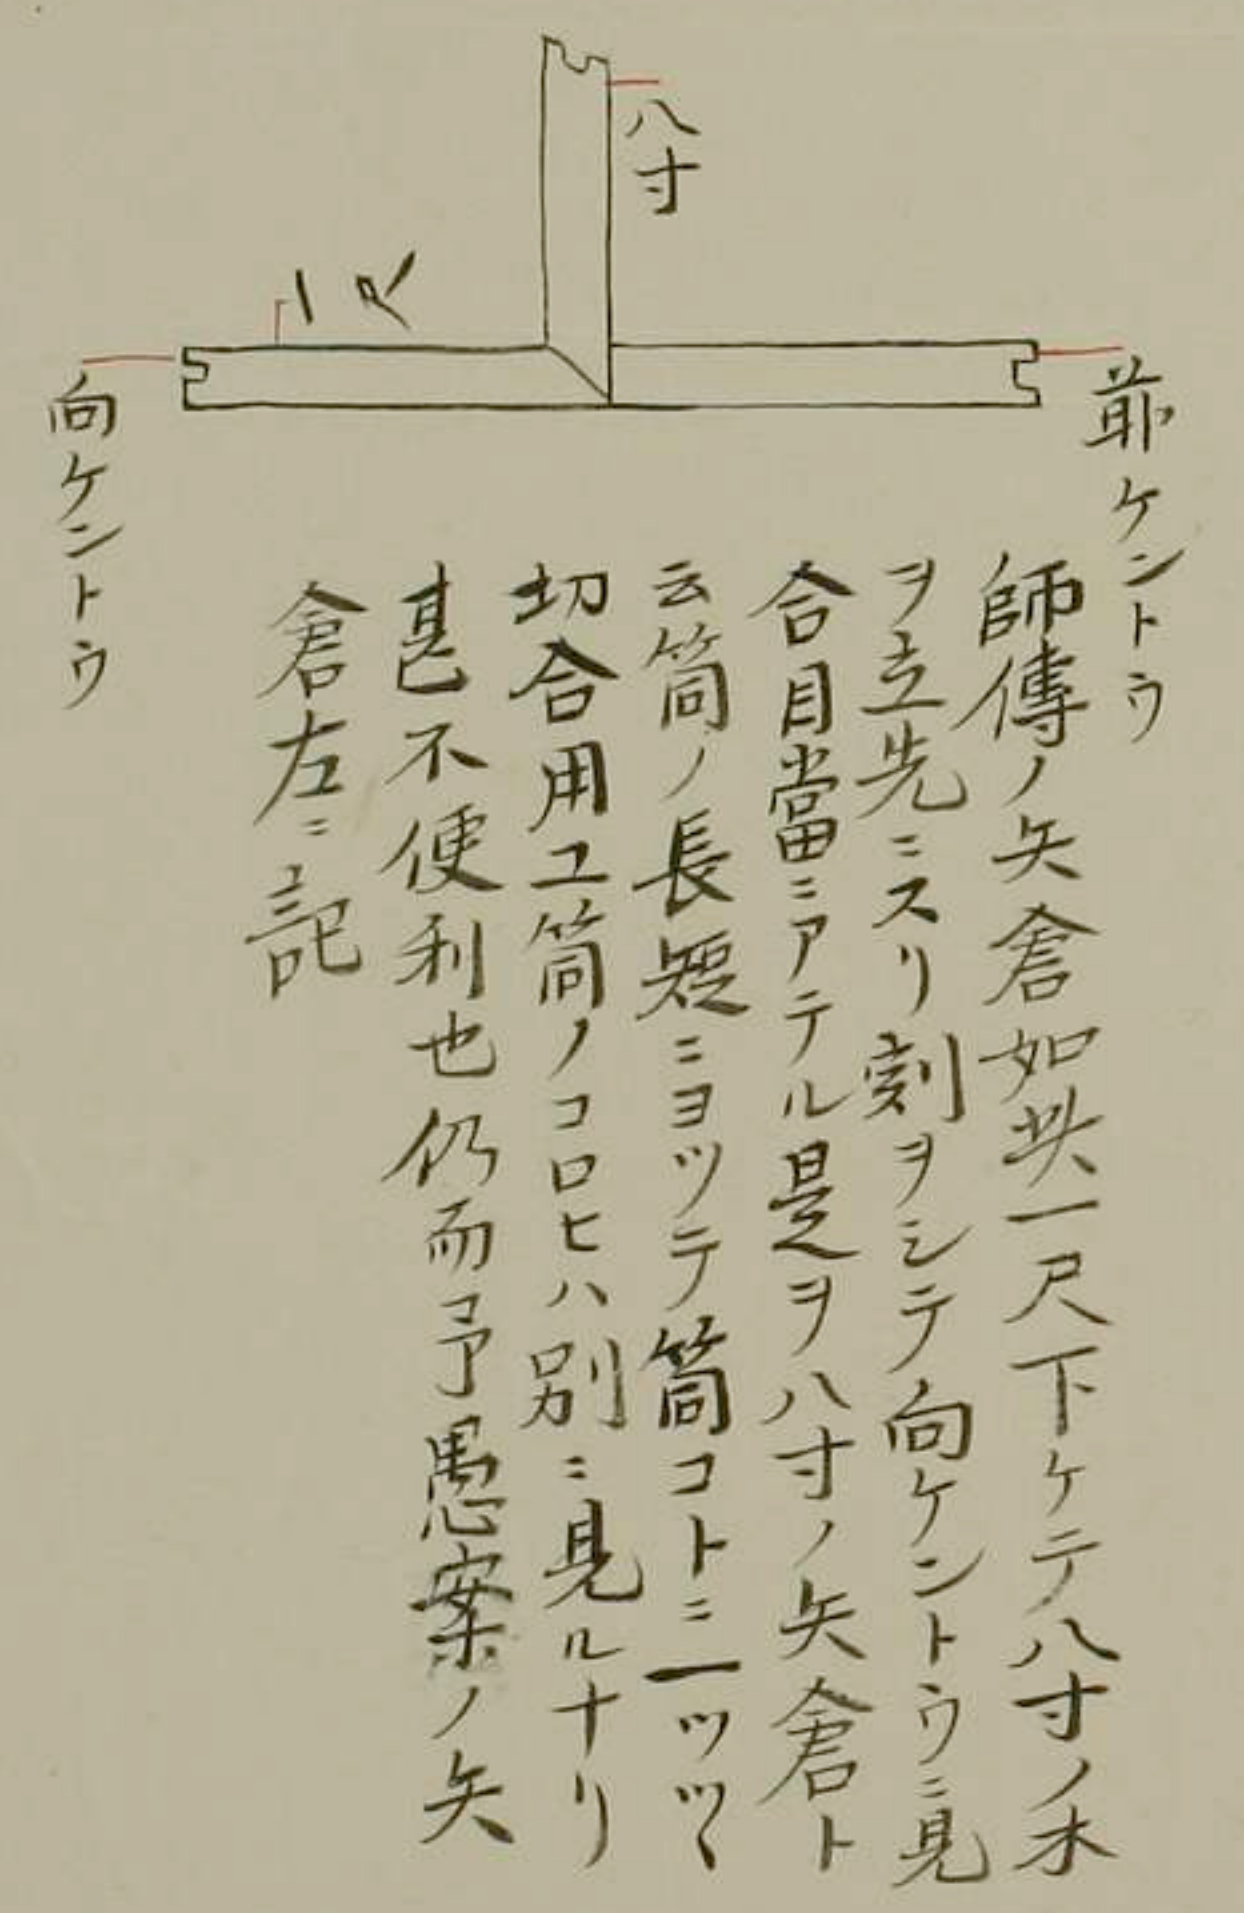 八寸
一尺
前ケントウ
向ケントウ
師傳ノ矢倉如此一尺下ケテ八寸ノ木
ヲ立先ニスリ刻ヲシテ向ケントウニ見
合目當ニアテル是ヲ八寸ノ矢倉ト
云筒ノ長短ニヨツテ筒コトニ一ツツヽ
切合用ユ筒ノコロヒハ別ニ見ルナリ
甚不便利也仍而予愚案ノ矢
倉左ニ記